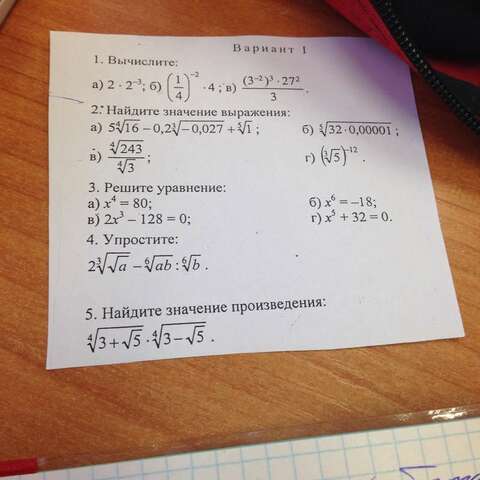 Вариант 1
1. Вычислите:
а) 2 · 2⁻³; б) (1/4)⁻² · 4; в) (3⁻²)³ · 27² / 3.
2. Найдите значение выражения:
а) 5∜16 − 0,2∛−0,027 + ⁵√1; б) ⁵√32·0,00001;
в) ∜243 / ∜3; г) (∛5)⁻¹².
3. Решите уравнение:
а) x⁴ = 80; б) x⁶ = −18;
в) 2x³ − 128 = 0; г) x⁵ + 32 = 0.
4. Упростите:
2∛√a − ⁶√ab : ⁶√b .
5. Найдите значение произведения:
∜3+√5 · ∜3−√5 .